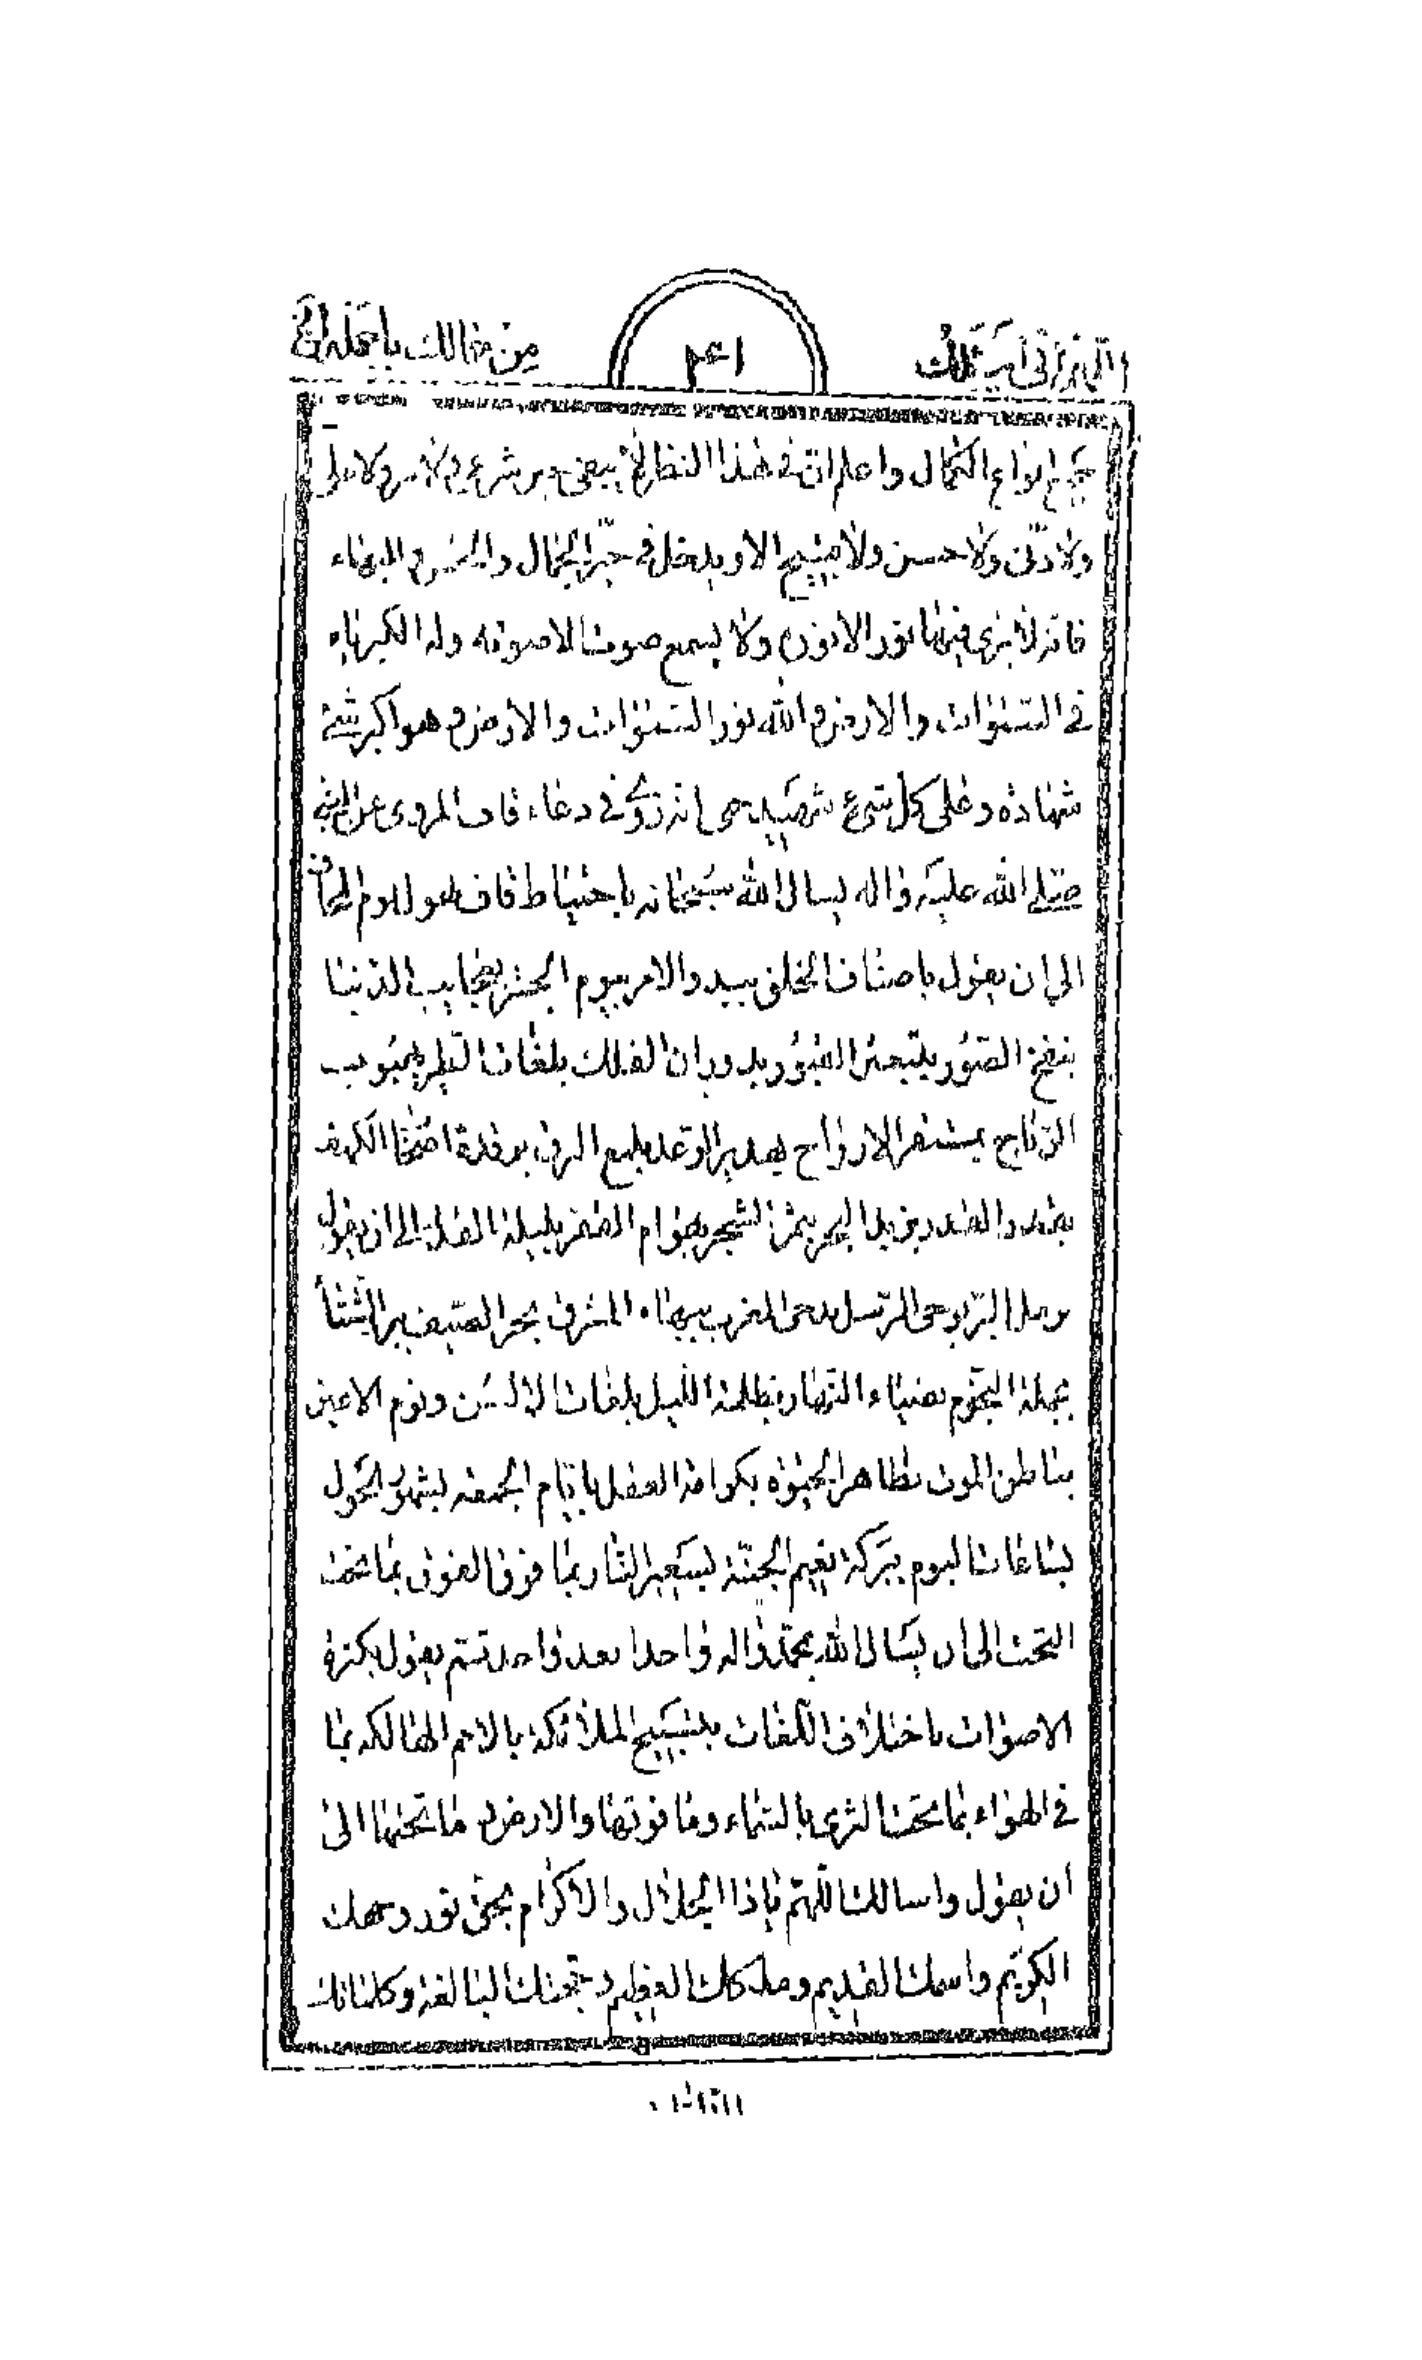 اللهم انى اسئلك
١٤٢
من جمالك باجمله الخ
جميع انواع الكمال واعلم ان فى هذا النظر لا يبقى
ولا دنى ولا حسن ولا قبيح الا ويدخل فى حيز الجمال والحسن و البهاء
فانه لا يرى فيها نور الا نوره ولا يسمع صوت الا صوته وله الكبرياء
فى السموات والارض و الله نور السموات والارض و هو اكبر شئ
شهادة وعلى كل شئ شهيد انه روى فى دعاء قاف المروى عن النبى
صلى الله عليه واله يسال الله سبحانه باحتياط قاف بهول يوم
الى ان يقول باصناف الخلق ببدو الامر بيوم الحشر بعجايب الدنيا
بنفخ الصور بتبعثر القبور بدوران الفلك بلغات الطير بهبوب
الرياح بمستقر الارواح بهدير الرعد بلمع البرق برقدة اصحاب الكهف
القدر بزبد البحر بثمر الشجر بعوام القمر بليلة القدر الى ان يقول
برمل البر بوحى الرسل بدحى المغرب ببهاء المشرق بحر الصيف ببرد الشتاء
بجملة النجوم بضياء النهار بظلمة الليل بلغات الالسن ونوم الاعين
بباطن الموت بظاهر الحيوة بكرامة العقل بايام الجمعة بشهور الحول
بساعات اليوم ببركة نعيم الجنة بسعير النار بما فوق الفوق بما تحت
التحت الى ان يسال الله بمحمد واله واحدا بعد واحد ثم يقول بكثرة
الاصوات باختلاف اللغات بتسبيح الملائكة بالامم الهالكة بما
فى الهواء بما تحت الثرى بالسماء وما فوقها والارض وما تحتها الى
ان يقول واسالك اللهم يا ذا الجلال والاكرام بحق نور وجهك
الكريم واسمك القديم وملكك العظيم وحجتك البالغة وكلماتك